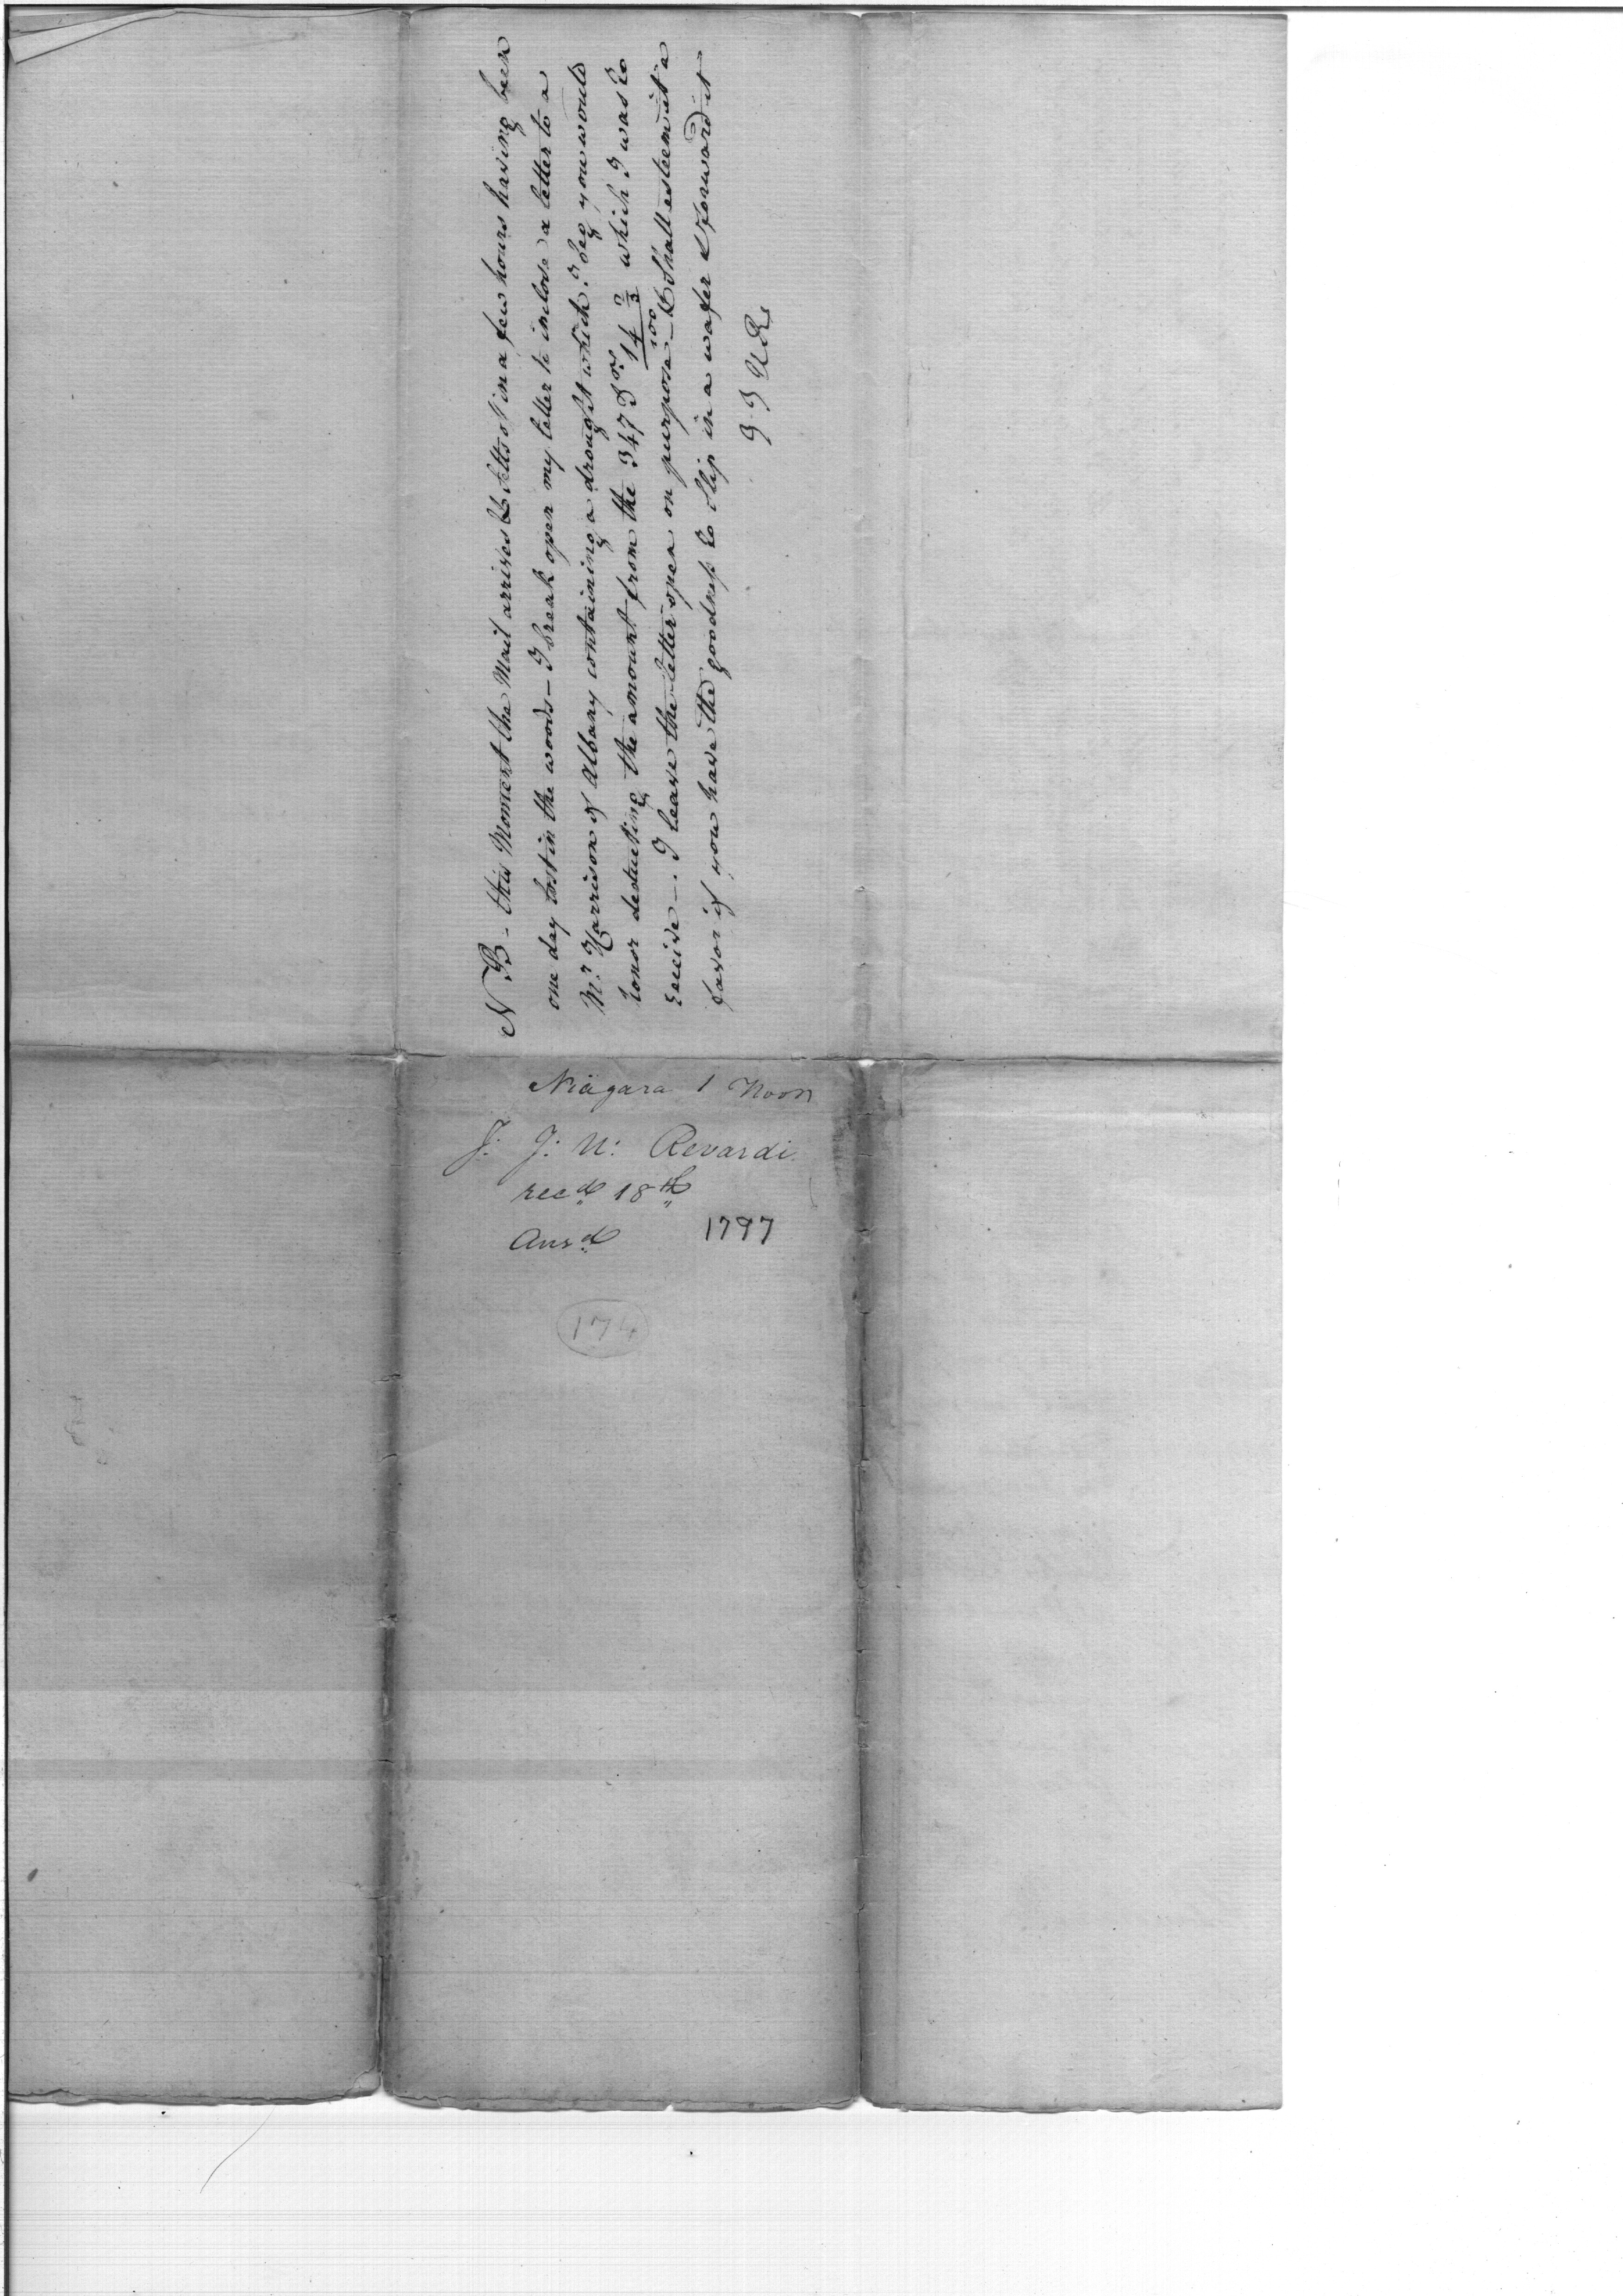 NB - this Moment the Mail arrives & setts of in a few hours having been
one day lost in the woods - I break open my letter to inclose a letter to a
Mr. Harrison of Albany containing a drought which I beg you would
honor deducting the amount from the 347 Drs. 14 2/3/100 which I was to
receive -. I leave the letter open on purpose - & Shall esteem it a
favor if you have the goodness to slip in a wafer & forward it
J J U Ri
Niagara 1 Noon
J. J: U: Rivardi.
recd 18th
Ansd 1797
174